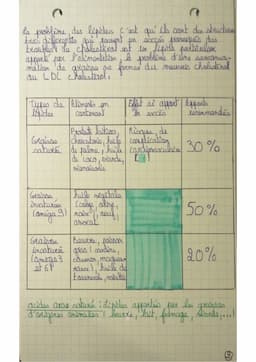 Le problème, des lipides c'est qu'ils sont des structures
très différentes qui peuvent en excès provoquer des
troubles du cholestérol est un lipide particulier
apporté par l'alimentation le problème d'une consomma-
mation de graisses se forme du mauvais cholestérol
ou LDC cholestérol.
Types de lipides
Aliments en contenant
Effet si apport en excès
Apports recommandés
Graisse saturée
Produit laitiers, charcuterie, huile de palme, huile de coco, viande, viennoiserie
Risque de complication cardiovasculaire
30 %
Graisse insaturée (oméga 9)
huile végétale (colza, olive, noix), œuf, avocat
50 %
Graisse insaturée (oméga 3 et 6)
Beurre, poisson gras
saumon, maquereau
huile de tournesol
20 %
acides gras saturé : lipides apportés par les graisses
d'origines animales (beurre, lait, fromage, viande, ...)
3